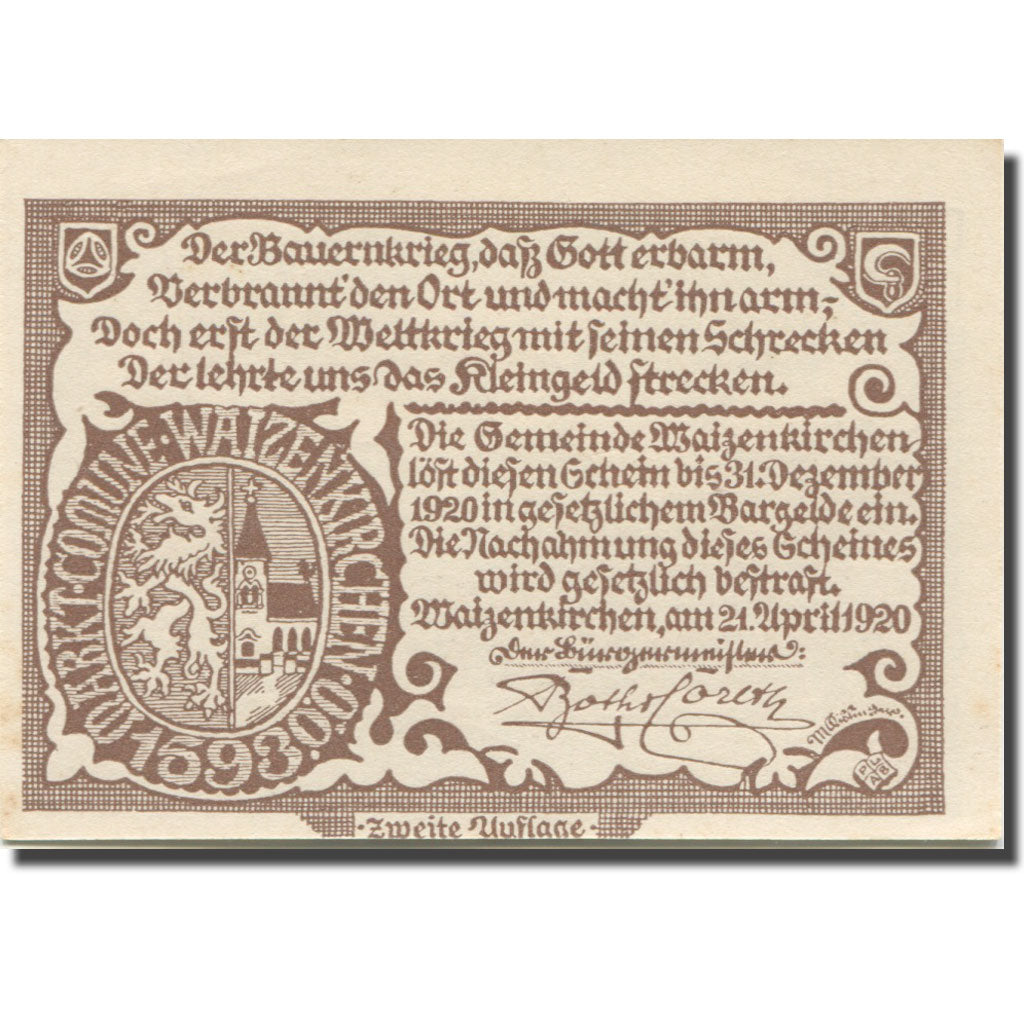 Der Bauernkrieg, daß Gott erbarm,
Verbrannt' den Ort und macht' ihn arm;
Doch erst der Weltkrieg mit seinen Schrecken
Der lehrte uns das Kleingeld strecken.
MARKT·COMUNE·WAIZENKIRCHEN·
1693
Die Gemeinde Waizenkirchen
löst diesen Schein bis 31. Dezember
1920 in gesetzlichem Bargelde ein.
Die Nachahmung dieses Scheines
wird gesetzlich bestraft.
Waizenkirchen, am 21. April 1920
der Bürgermeister:
·Zweite Auflage·